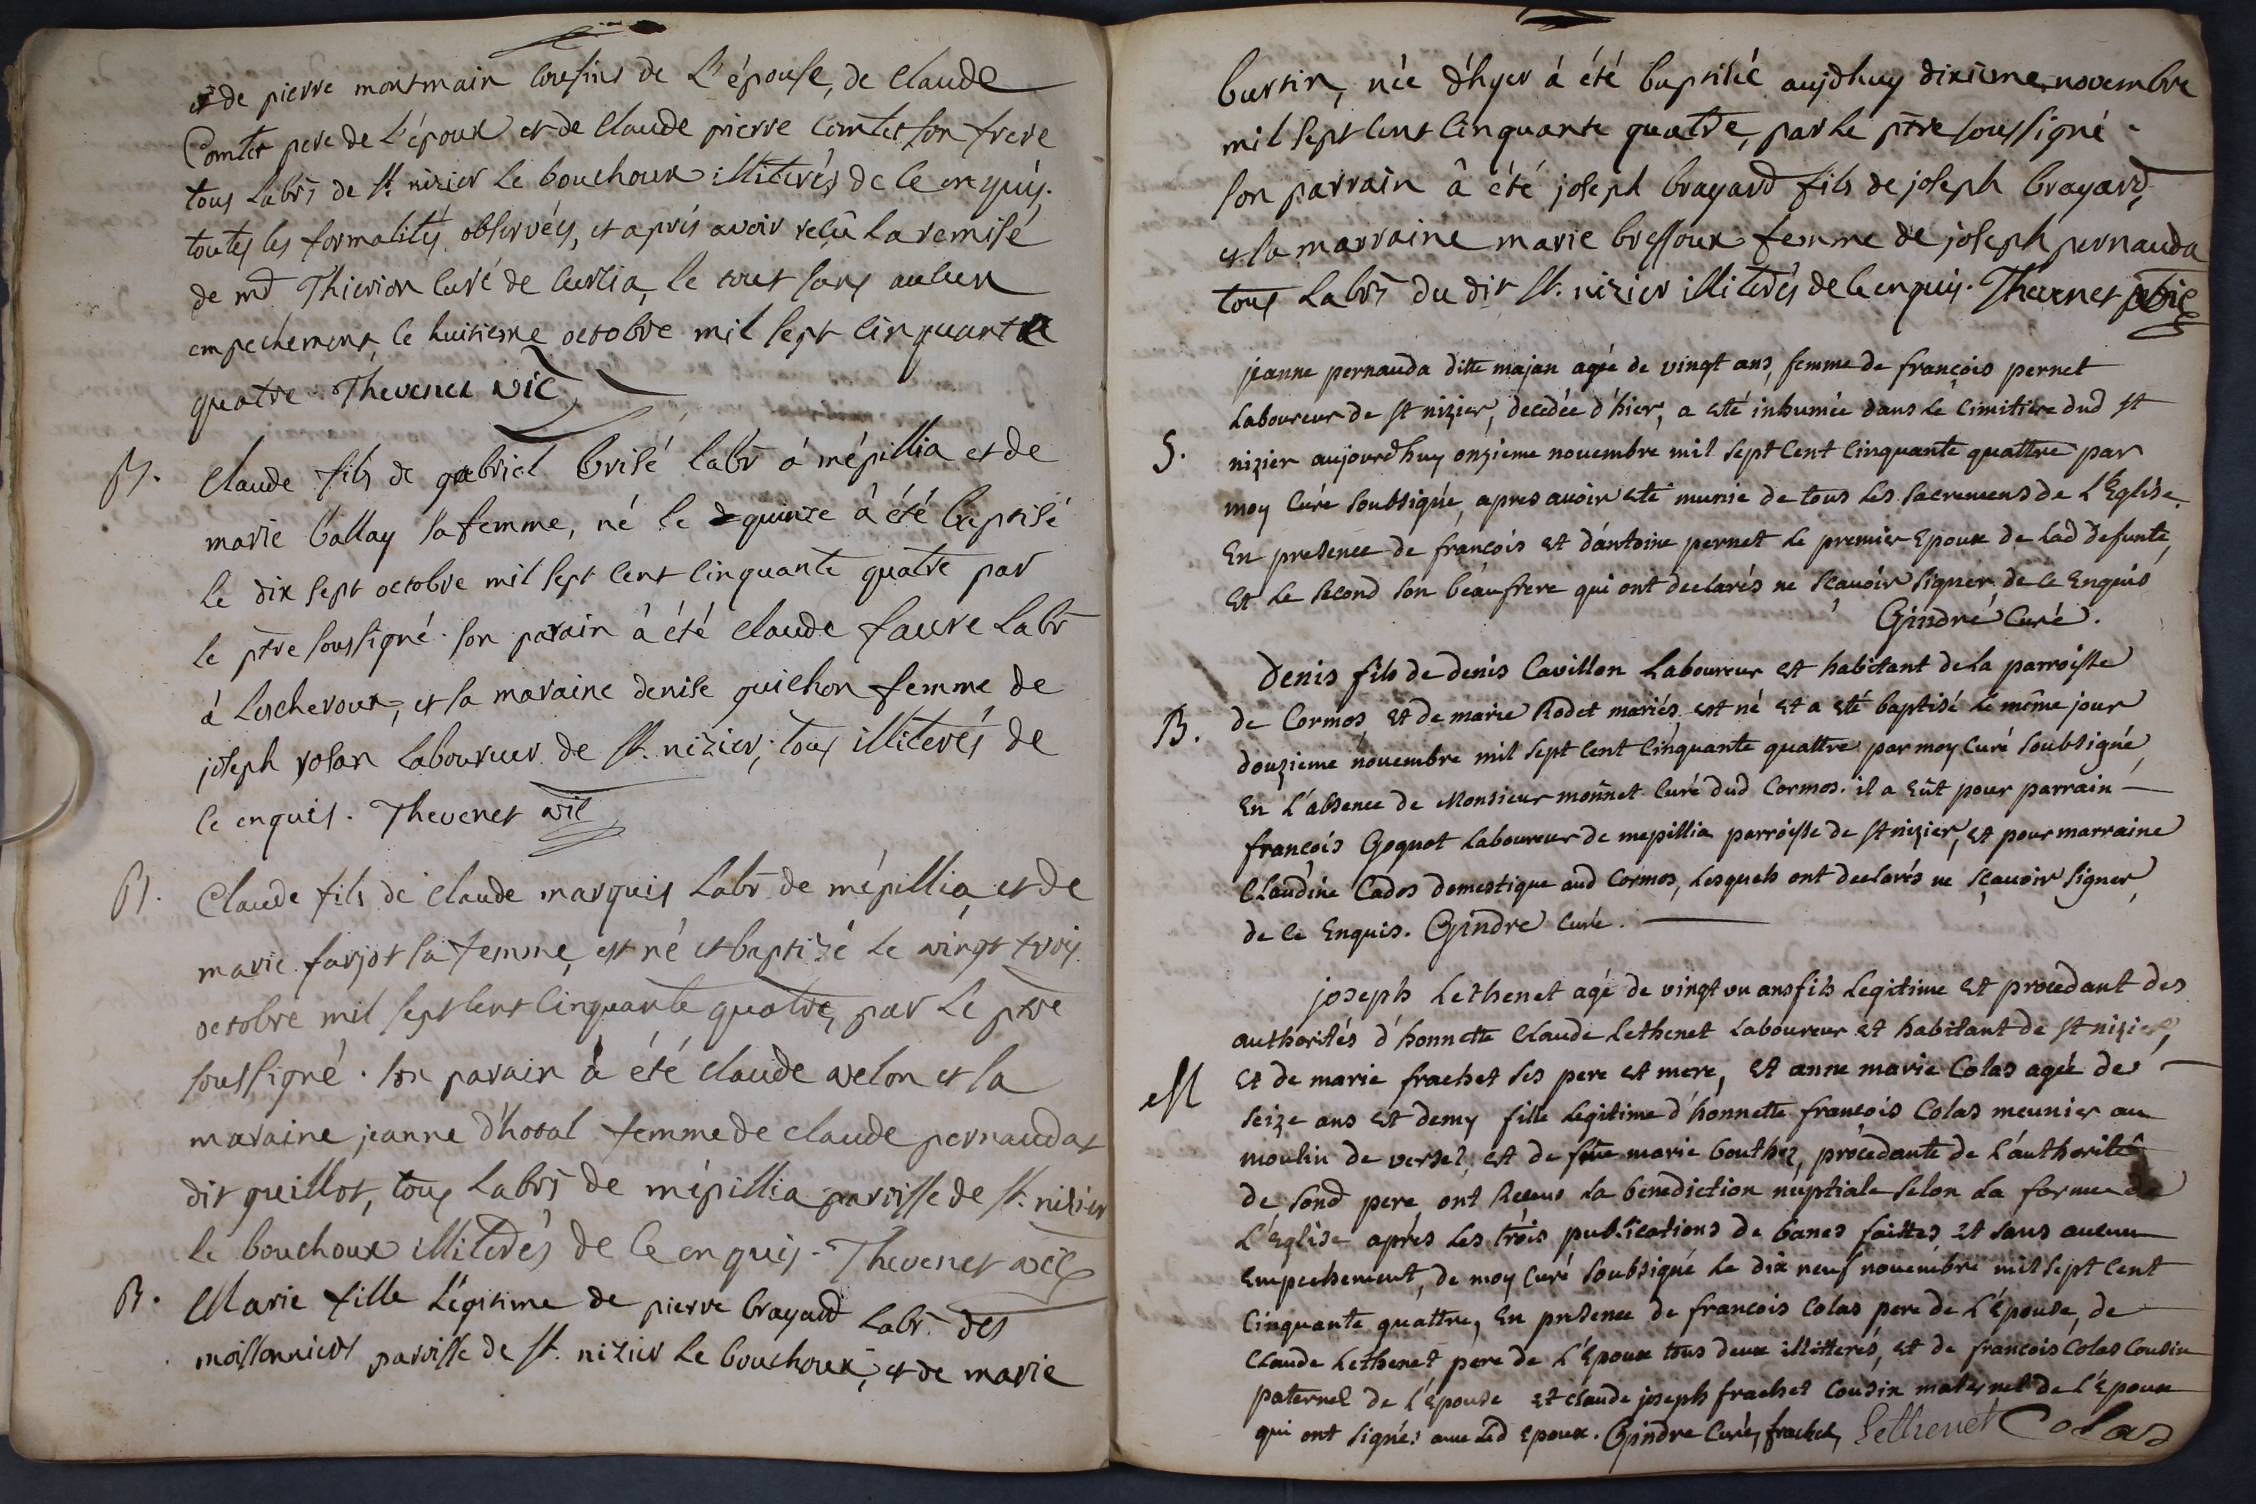 et de pierre montmain cousins de L'épouse, de claude
Comtet pere de L'époux et de claude pierre comtet son frere
tous Labrs de st. nizier le bouchoux illiterés de ce enquis.
toutes les formalités observées, et aprés avoir reçû la remise
de md Thierion curé de curtia, le tout sans aucun
empechement, le huitieme octobre mil sept cinquante
quatre. Thevenet vic
B. Claude fils de gabriel brisé labr á mépillia et de
marie ballay sa femme, né le quinze á été baptisé
le dix sept octobre mil sept cent cinquante quatre par
le ptre soussigné. son parain á été claude faure labr
á Lescheroux, et sa maraine denise guichon femme de
joseph rolan Laboureur de st. nizier, tous illiterés de
ce enquis. Thevenet vic
B. Claude fils de claude marquis Labr de mépillia, et de
marie farjot sa femme, est né et baptizé le vingt trois
octobre mil sept cent cinquante quatre, par Le ptre
soussigné. son parain á été claude velon et sa
maraine jeanne d'horal femme de claude pernaudat
dit guillot, tous Labrs de mépillia paroisse de st. nizier
le bouchoux illiterés de ce enquis. Thevenet vic
B. Marie fille Légitime de pierre brayard Labr. des
moissonniers paroisse de st. nizier Le bouchoux, et de marie
burtin, née d'hyer á été baptisée aujdhuy dixieme novembre
mil sept cent cinquante quatre, par Le ptre soussigné.
son parrain â été joseph brayard fils de joseph brayard,
et sa marraine marie bressoux femme de joseph pernauda
tous Labrs du dit st. nizier illiterés de ce enquis. Thevenet vic
jeanne pernauda ditte majan agée de vingt ans, femme de françois pernet
Laboureur de st nizier, decedée d'hier, a eté inhumée dans le cimitiere dud st
S. nizier aujourdhuy onzieme novembre mil sept cent cinquante quattre par
moy Curé soubsigné, apres avoir eté munie de tous les sacremens de L'Eglise.
En presence de françois et d'antoine pernet le premier Epoux de lad defunte,
et le second son beaufrere qui ont declarés ne sçavoir signer de ce Enquis
Gindre Curé.
Denis fils de denis Cavillon Laboureur et habitant de la parroisse
B. de Cormos, et de marie Rodet mariés est né et a eté baptisé le même jour
douzieme novembre mil sept cent cinquante quattre par moy Curé soubsigné,
En L'absence de Monsieur monnet Curé dud Cormos. il a eût pour parrain
françois Goquot Laboureur de mepillia parroisse de st nizier, et pour marraine
Claudine Cados domestique aud Cormos, lesquels ont declarés ne sçavoir signer,
de ce Enquis. Gindre Curé.
joseph Lethenet agé de vingt un ans fils Legitime et procedant des
authorités d'honnette Claude Lethenet Laboureur et habitant de st nizier,
M et de marie frachet ses pere et mere, et anne marie Colas agée de
seize ans et demy fille Legitime d'honnette françois Colas meunier au
moulin de versel, et de feüe marie bouthez, procedante de l'authorité
de sond pere, ont Receus la benediction nuptiale selon la forme de
L'Eglise aprés les trois publications de bancs faittes et sans aucun
Empechement, de moy Curé soubsigné le dix neuf novembre mil sept cent
Cinquante quattre, En presence de françois Colas pere de L'Epouse, de
Claude Lethenet pere de L'Epoux tous deux illitterés, et de françois Colas Cousin
paternel de L'Epouse et Claude joseph frachet Cousin maternel de L'Epoux
qui ont signés avec led Epoux. Gindre Curé, frachet, Lethenet Colas